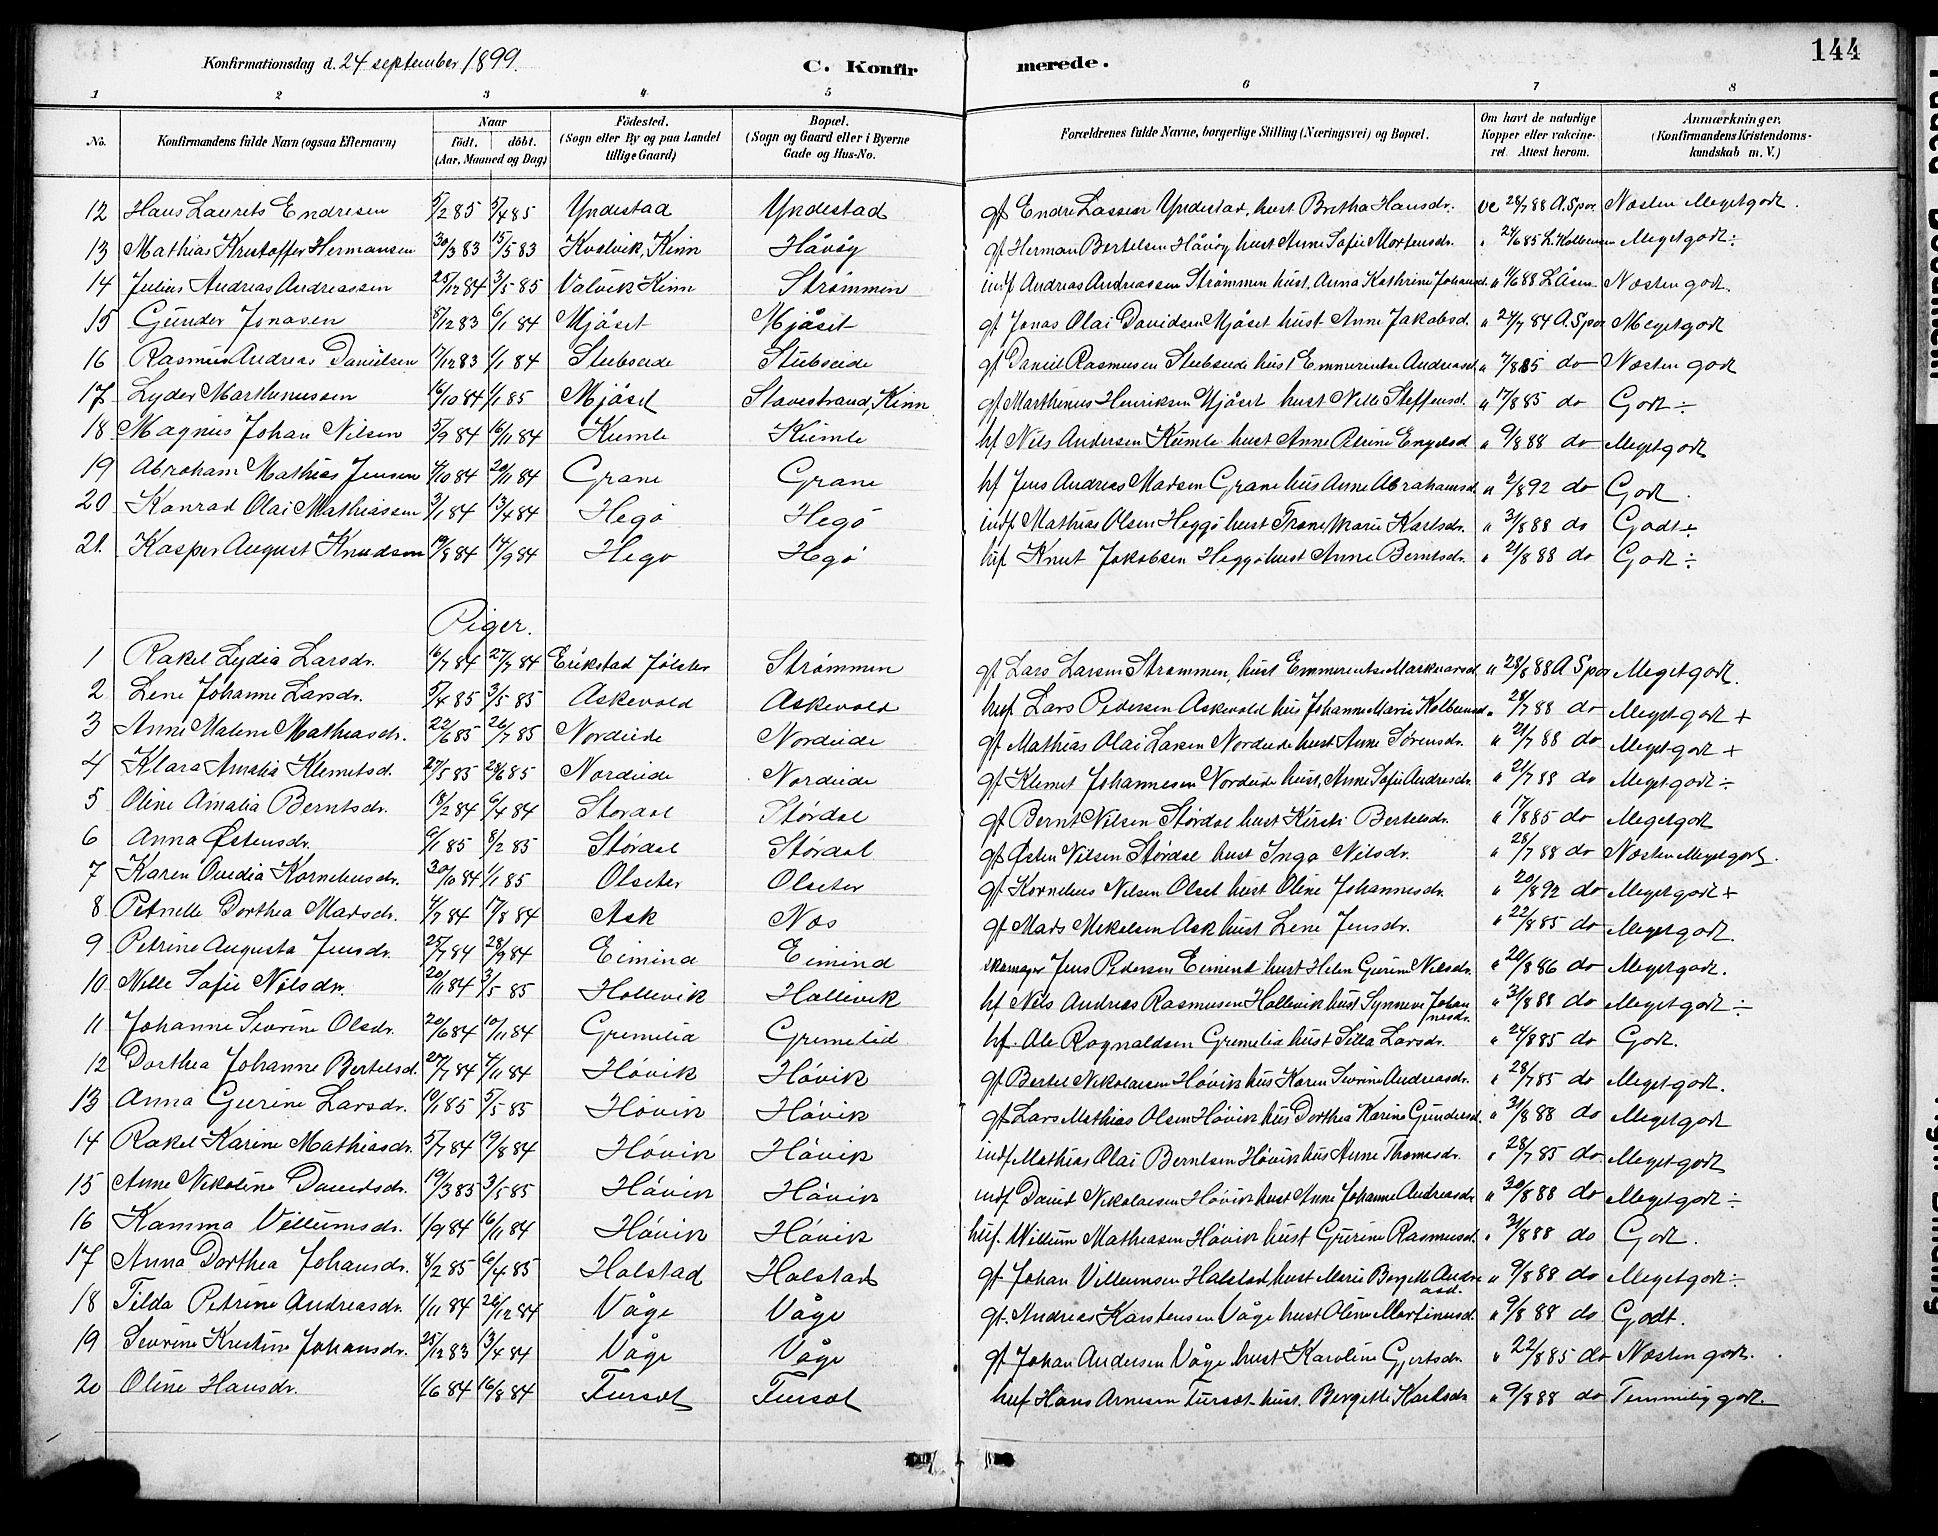 144
Konfirmationsdag d. 24 september 1899.
C. Konfirmerede.
1 2 3 4 5 6 7 8
No.
Konfirmandens fulde Navn (ogsaa Efternavn)
Naar
födt. döbt.
(Aar, Maaned og Dag)
Födested.
(Sogn eller By og paa Landet
tillige Gaard)
Bopæl.
(Sogn og Gaard eller i Byerne
Gade og Hus-No.
Forældrenes fulde Navne, borgerlige Stilling (Næringsvei) og Bopæl.
Om havt de naturlige
Kopper eller vakcine-
ret. Attest herom.
Anmærkninger.
(Konfirmandens Kristendoms-
kundskab m. V.)
12 Hans Laurets Endresen 5/2 85 5/4 85 Yndestad Yndestad gf Endre Lassen Yndestad, hust Bretha Hansdr. vc 28/7 88 A. Spor Næsten Megetgodt
13 Mathias Kristoffer Hermansen 30/3 83 15/5 83 Kvalvik, Kinn Håvøy gf Herman Bertelsen Håvøy hust Anne Sofie Mortensdr. " 24/6 85 Megetgodt ÷
14 Julius Andreas Andreassen 25/12 84 3/5 85 Valvik Kinn Strømmen indf Andreas Andreassen Strømmen hust. Anna Kathrine Næsten godt.
15 Gunder Jonasen 8/12 83 6/1 84 Mjåset Mjåset gf Jonas Olai Davidsen Mjåset hust Anne Jakobsd. " 24/7 84 A. Spor Megetgodt
16 Rasmus Andreas Danielsen 17/12 83 1/1 84 Stubseide Stubseide gf Daniel Rasmusen Stubseide hust Emmerentse Andreasd. " 7/8 85 do Næsten godt
17 Lyder Marthinussen 16/10 84 1/1 85 Mjåset Stavestrand, Kinn gf Marthinus Henriksen Mjåset hust Nille Steffensd. " 17/8 85 do Godt ÷
18 Magnus Johan Nilsen 5/9 84 16/11 84 Kumle Kumle hf Nils Andersen Kumle hust Anne Petrine Engelsd. " 9/8 88 do Megetgodt
19 Abraham Mathias Jensen 4/10 84 20/11 84 Grane Grane hf Jens Andreas Madsen Grane hus Anne Abrahamsd. " 2/8 92 do Godt.
20 Konrad Olai Mathiassen 3/1 84 13/4 84 Hegø Hegø indf Mathias Olsen Heggø hust Trane Marie Karlsdr. " 31/8 88 do Godt ÷
21. Kasper August Knudsen 19/8 84 14/9 84 Hegø Hegø hf Knut Jakobsen Heggø hust Anne Berntsdr. " 21/8 88 do Godt ÷
Piger.
1 Rakel Lydia Larsdr. 16/7 84 27/7 84 Erikstad Jølster Strømmen gf Lars Larsen Strømmen, hust Emmerentse " 28/8 88 A Spor Megetgodt.
2 Lene Johanne Larsdr. 5/4 85 3/5 85 Askevold Askevold husf Lars Pedersen Askevold hus Johanne Marie " 28/7 88 do Megetgodt +
3 Anne Malene Mathiasdr. 22/6 85 26/7 85 Nordeide Nordeide gf Mathias Olai Larsen Nordeide hust Anne Sørensdr. " 21/7 88 do Megetgodt +
4 Klara Amalia Klemetsd. 27/5 85 28/6 85 Nordeide Nordeide gf Klemet Johannesen Nordeide hust, Anne Sofie Andreasdr. " 21/7 88 do Megetgodt ÷
5 Oline Amalia Berntsdr. 18/2 84 6/4 84 Stordal Størdal gf Bernt Nilsen Størdal hust Kirsti Bertelsdr. " 17/8 85 do Megetgodt
6 Anna Østensdr. 6/1 85 8/2 85 Størdal Størdal gf Østen Nilsen Størdal hust Inga Nilsdr. " 28/7 88 do Næsten Megetgodt.
7 Karen Ovedia Korneliusdr. 30/10 84 1/1 85 Olseter Olseter gf Kornelius Nilsen Olset hust Oline Johannesdr. " 20/8 92 do Megetgodt +
8 Petnelle Dorthea Madsdr. 4/7 84 17/8 84 Ask Nos gf Mads Mikelsen Ask hust Lene Jensdr. " 22/8 85 do Megetgodt.
9 Petrine Augusta Jensdr. 25/7 84 28/9 84 Eimind Eimind skomager Jens Pedersen Eimind hust Helen Gurine Nilsdr. " 20/8 86 do Megetgodt.
10 Nille Sofie Nilsdr. 20/11 84 3/5 85 Hollevik Hollevik hf Nils Andreas Rasmusen Hollevik hust Synneve Johannesdr. " 31/8 88 do Megetgodt ÷
11 Johanne Sevrine Olsdr. 20/6 84 10/11 84 Gremelid Gremelid hf. Ole Ragnaldsen Gremelid hust Silla Larsdr. " 24/8 85 do Godt.
12 Dorthea Johanne Bertelsd. 27/7 84 4/11 84 Høvik Høvik gf Bertel Nikolaisen Høvik hus Karen Sevrine Andreasdr. " 28/7 85 do Megetgodt.
13 Anna Gurine Larsdr. 10/1 85 5/5 85 Høvik Høvik gf Lars Mathias Olsen Høvik hus Dorthea Karine Gundersd. " 31/8 88 do Megetgodt
14 Rakel Karine Mathiasdr. 5/7 84 19/8 84 Høvik Høvik indf Mathias Olai Berntsen Høvik hus Anne Thomesdr. " 28/7 85 do Megetgodt
15 Anne Nikoline Davidsdr. 19/3 85 3/5 85 Høvik Høvik indf David Nikolaisen Høvik hust Anne Johanne Andreasdr " 30/8 88 do Megetgodt ÷
16 Kamma Villumsdr. 1/9 84 16/11 84 Høvik Høvik huf. Willum Mathiasen Høvik hust Gurine Rasmusd. " 31/8 88 do Godt.
17 Anna Dorthea Johansdr. 8/2 85 6/4 85 Holstad Holstad gf. Johan Villumsen Halstad, hust Marie Bergitte Andreasd. " 9/8 88 do Megetgodt ÷
18 Tilda Petrine Andreasdr. 1/11 84 26/12 84 Våge Våge gf. Andreas Karstensen Våge hust Oline Martinusd. " 9/8 88 do Godt.
19 Sevrine Kristine Johansdr. 25/12 83 13/4 84 Våge Våge gf Johan Andersen Våge hust Karoline Gjertsdr. " 22/8 85 do Næsten godt.
20 Oline Hansdr. 1/6 84 16/8 84 Fursæt Fursæt huf Hans Arnesen Fursæt hust. Bergitte Karlsdr. " 9/8 88 do Temmelig godt.